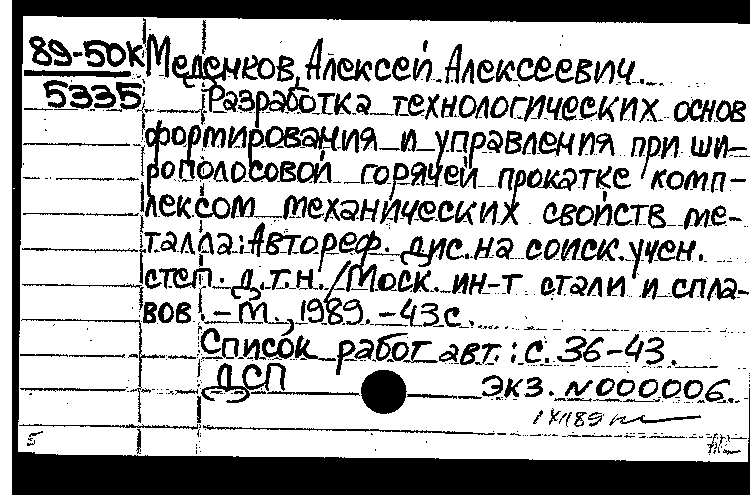 89-50К Меденков, Алексей Алексеевич.
5335 Разработка технологических основ
формирования и управления при ши-
рополосовой горячей прокатке комп-
лексом механических свойств ме-
талла: Автореф. дис. на соиск. учен.
степ. д.т.н. / Моск. ин-т стали и спла-
вов. - М., 1989. - 43 с.
Список работ авт.: с. 36-43.
ДСП Экз. N000006.
5